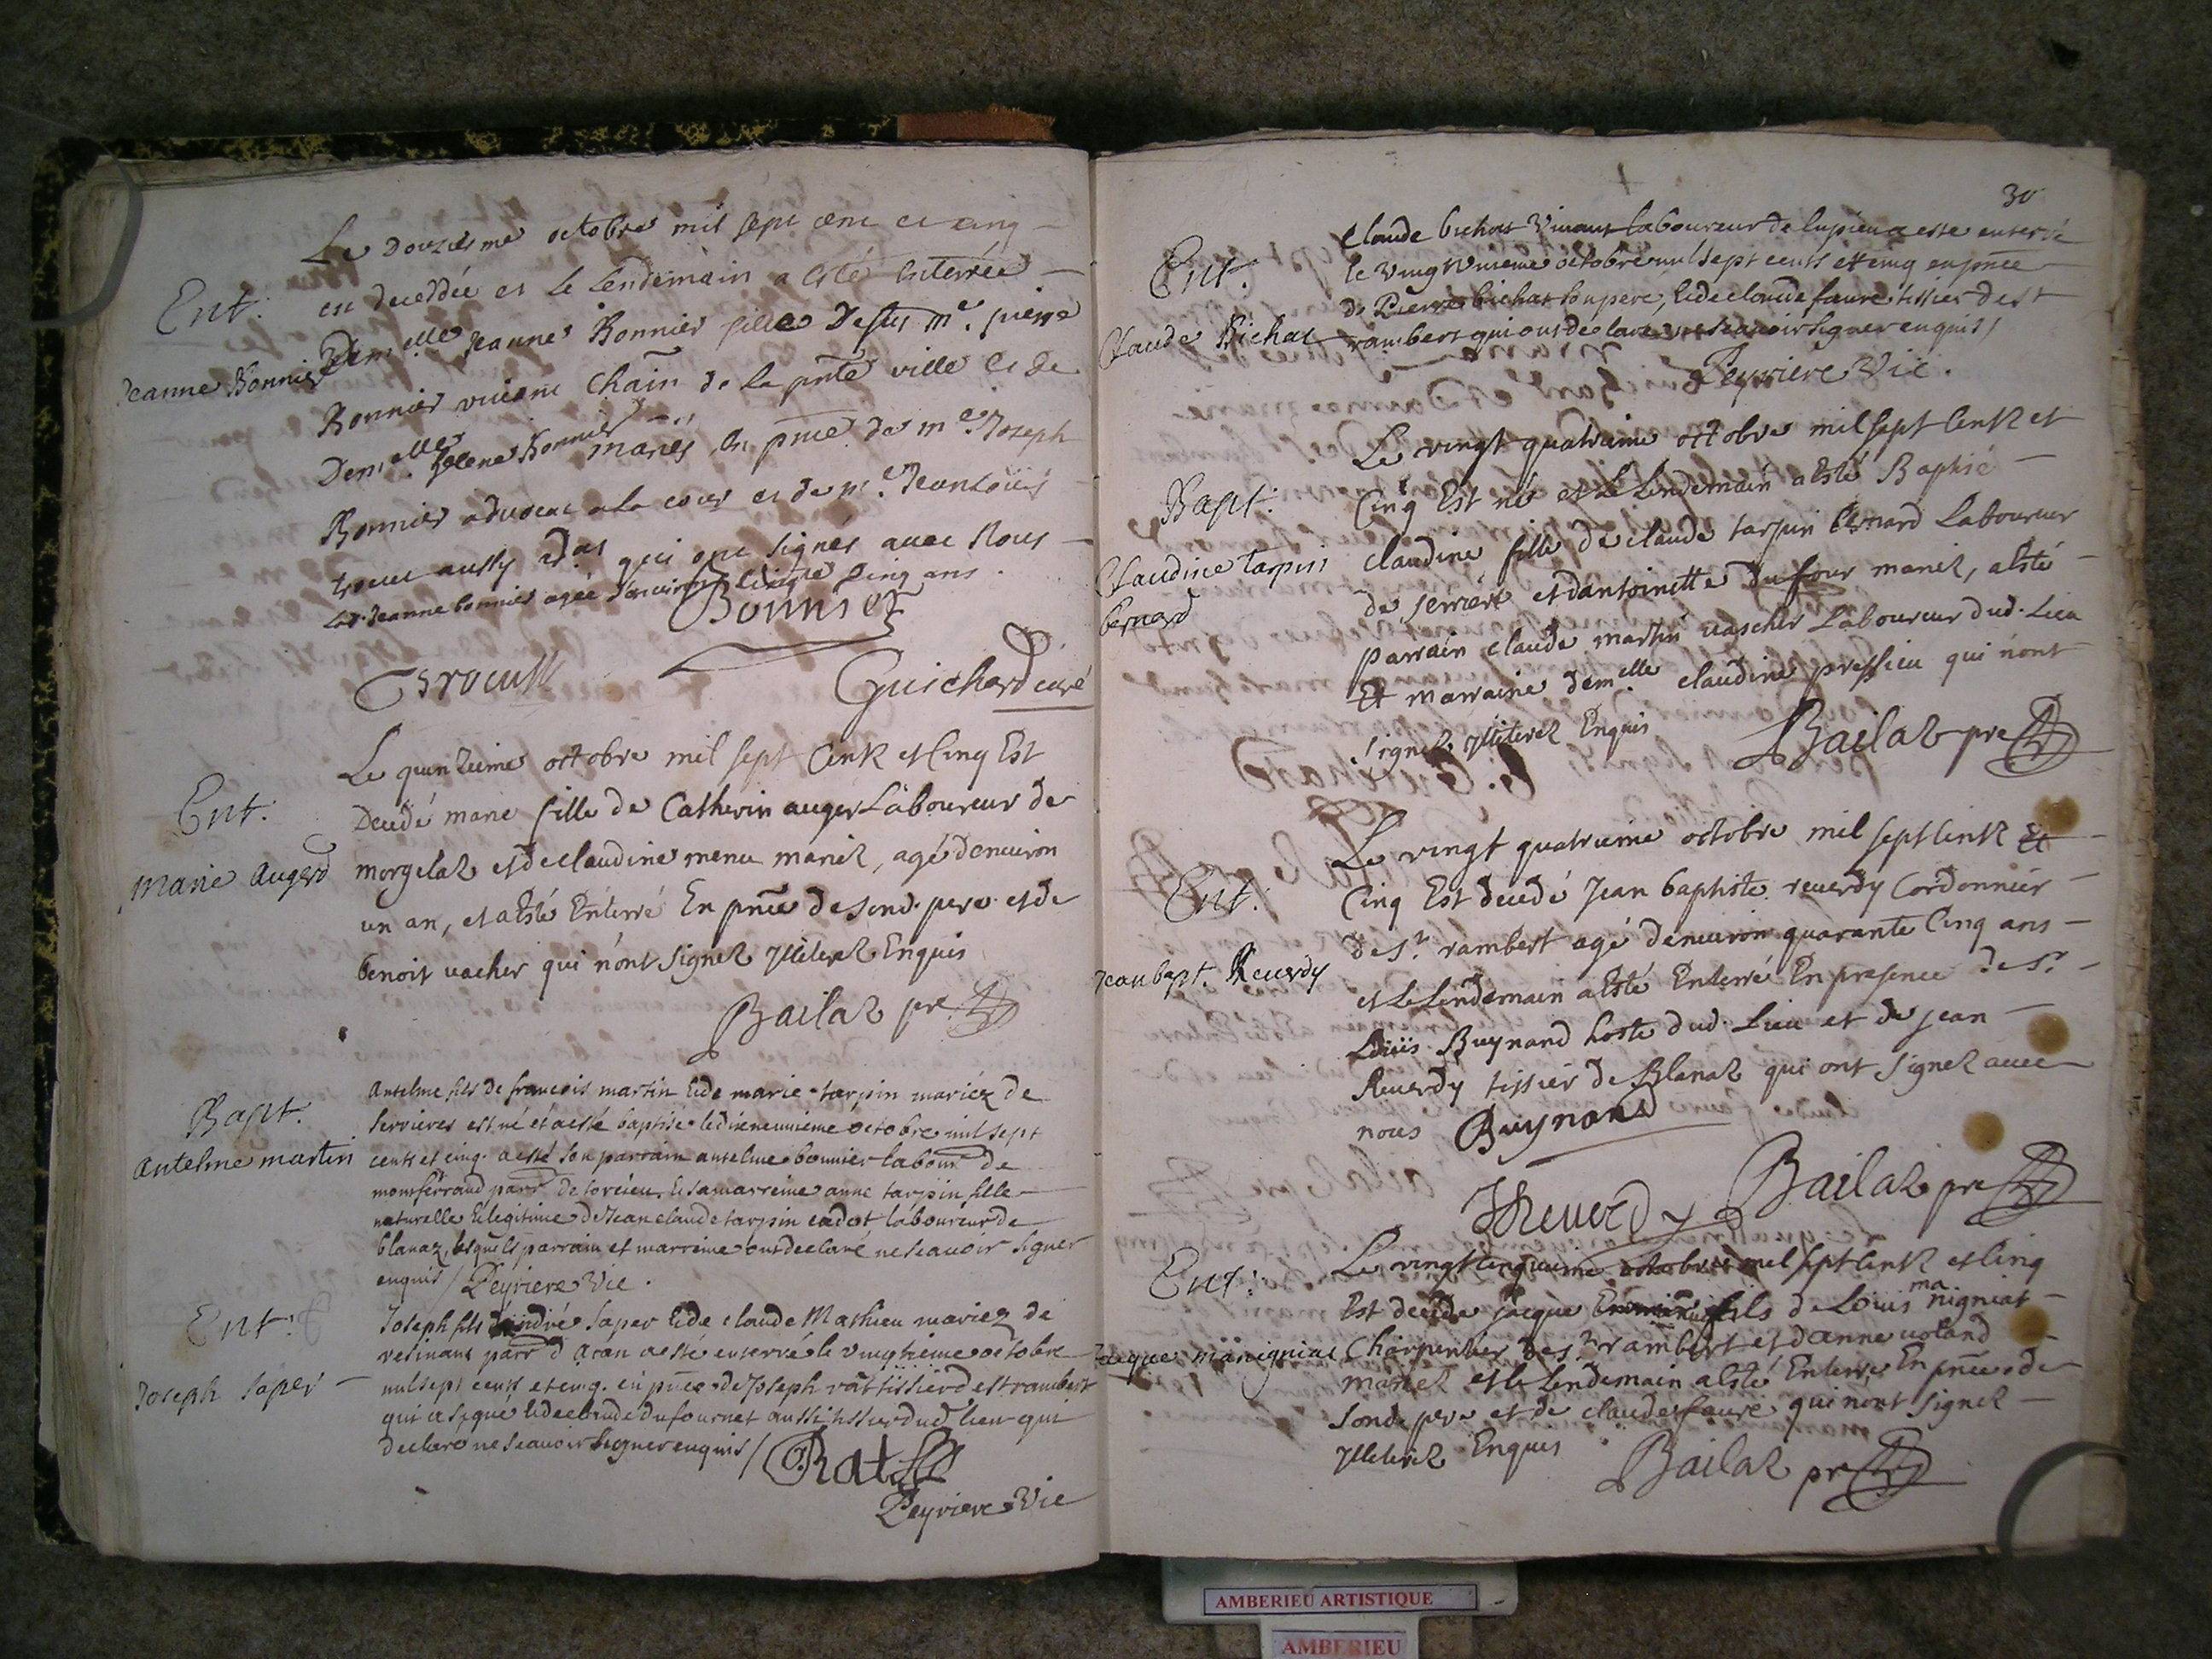 Le douziesme octobre mil sept cent et cinq
Ent.
est deceddée et le lendemain a esté enterrée
Jeanne Bonnier
Demlle Jeanne Bonnier fille de feu Mr. pierre
Bonnier vivant chain de la pnte ville et de
Demlle helene Bonnier mariés, en pnce de mr. Joseph
Bonnier advocat a la cour et de mr. Jean Loüis
trocu aussy adat qui ont signés avec Nous
lad. Jeanne bonnier agée d'environ cinq ans.
Bonnier
Trocu
Guichard curé
Le quinzieme octobre mil sept Cents et Cinq Est
Ent.
Decedé marie fille de Catherin auger Laboureur de
Marie Augerd
morgelaz et de claudine menu mariez, agé denuiron
un an, et a Esté Enterré En pnce de sond. pere et de
benoit uacher qui n'ont signez Illiterez Enquis
Bailaz pre
Bapt.
Anselme fils de francois martin et de marie tarpin mariéz de
antelme martin
Servieres est né et a esté baptisé le dixneuuieme octobre mil sept
cents et cinq. a esté son parrain anselme bonnier labour de
momferrand parr de torcieu, et sa marreine anne tarpin fille
naturelle et legitime de Jean claude tarpin cadot laboureur de
blanaz, lesquels parrain et marreine ont declaré ne scauoir signer
enquis / Peyriere Vic.
Ent.
Joseph fils d'andré saper et de claude Mathieu mariez de
Joseph saper
vesinans parr d'aran a esté enterré le vingtieme octobre
mil sept cents et cinq. en pnce de Joseph rat tissier de st rambert
qui a signé et de claude dufournet aussi tissier dud. lieu qui
declaré ne scauoir signer enquis /
Rat
Peyriere Vic
30
Claude bichat vivant laboureur de lupieu a esté enterré
Ent.
le vingt uniéme octobre mil sept cents et cinq en pnce
de Pierre bichat son pere, et de claude faure tissier de st
Claude Bichat
rambert qui ont declaré ne scauoir signer enquis /
Peyriere Vic.
Le vingt quatrieme octobre mil sept Cents et
Bapt.
Cinq Est né et Le Lendemain a Esté Baptisé
Claudine tarpin
bernard
claudine fille de claude tarpin bernard Laboureur
de serriere et dantoinette du four mariez, a Esté
parrain claude martin uascher Laboureur dud. Lieu
Et marraine demelle claudine pressieu qui n'ont
signez Illiterez Enquis
Bailaz pre
Le vingt quatrieme octobre mil sept Cents Et
Ent.
Cinq Est decedé Jean baptiste reuerdy Cordonnier
Jean bapt. Reuerdy
de st. rambert agé denuiron quarante Cinq ans
et Le Lendemain a Esté Enterré En presence de sr.
Loüis Buynand hoste dud. Lieu et de jean
Reuerdy tissier de Blanaz qui ont signez auec
nous
Buynand
J Reuerdy
Bailaz pre
Le vingt cinquieme octobre mil sept Cents et Cinq
Ent.
Est decedé jacque fils de Louis manigniat
Jacque manigniat
Charpentier de st rambert et d'anne uoland
mariez et le Lendemain a Esté Enterré En pnce de
sond. pere et de claude faure qui n'ont signez
Illiterez Enquis
Bailaz pre
AMBERIEU ARTISTIQUE
AMBERIEU